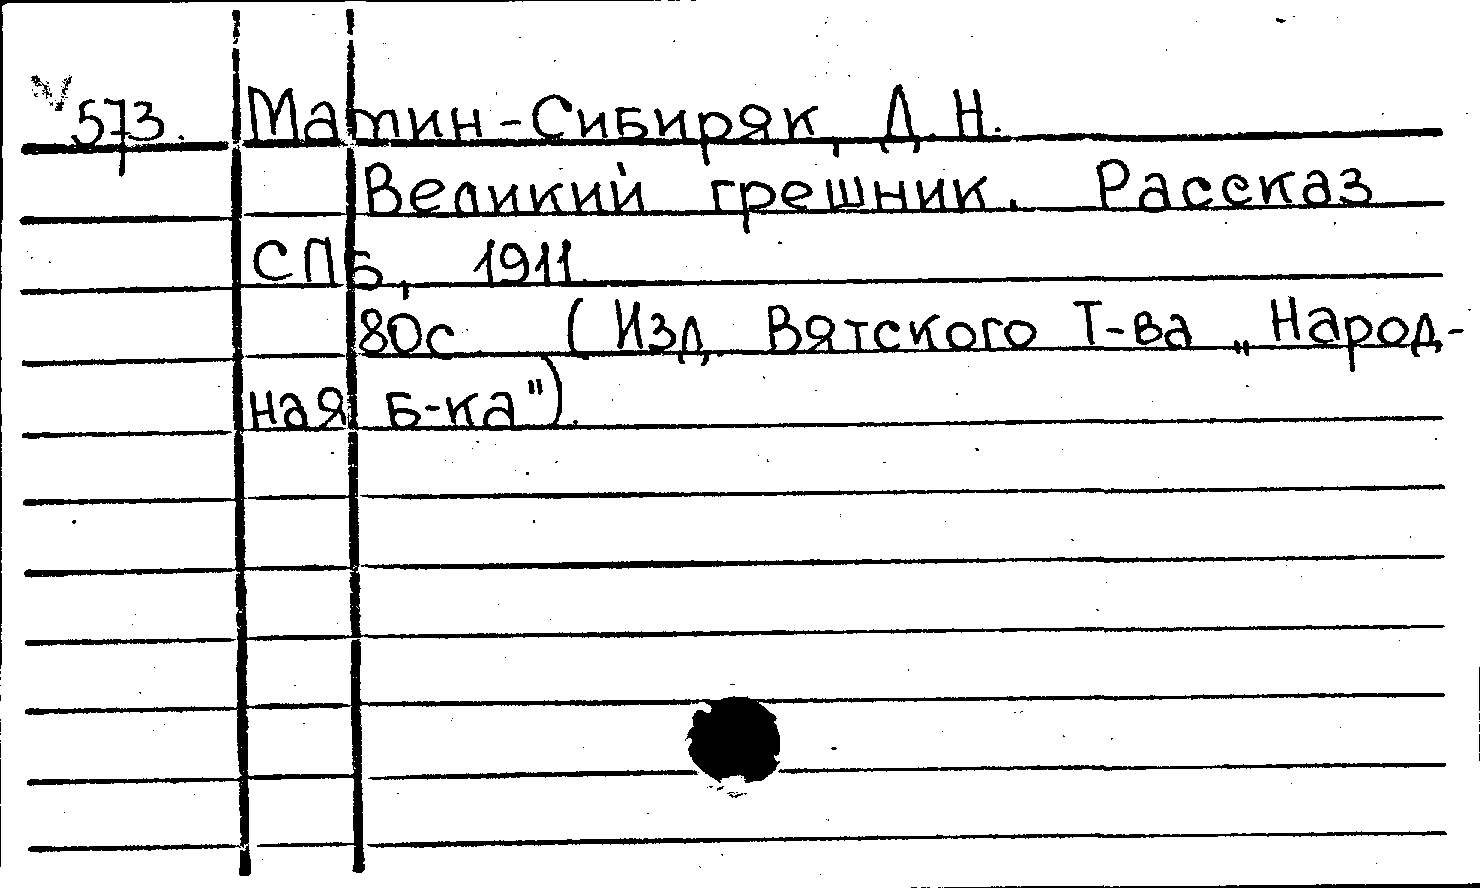 V 573. Мамин-Сибиряк, Д. Н.
Великий грешник. Рассказ
СПБ, 1911
80с (Изд. Вятского Т-ва „Народ-
ная б-ка").